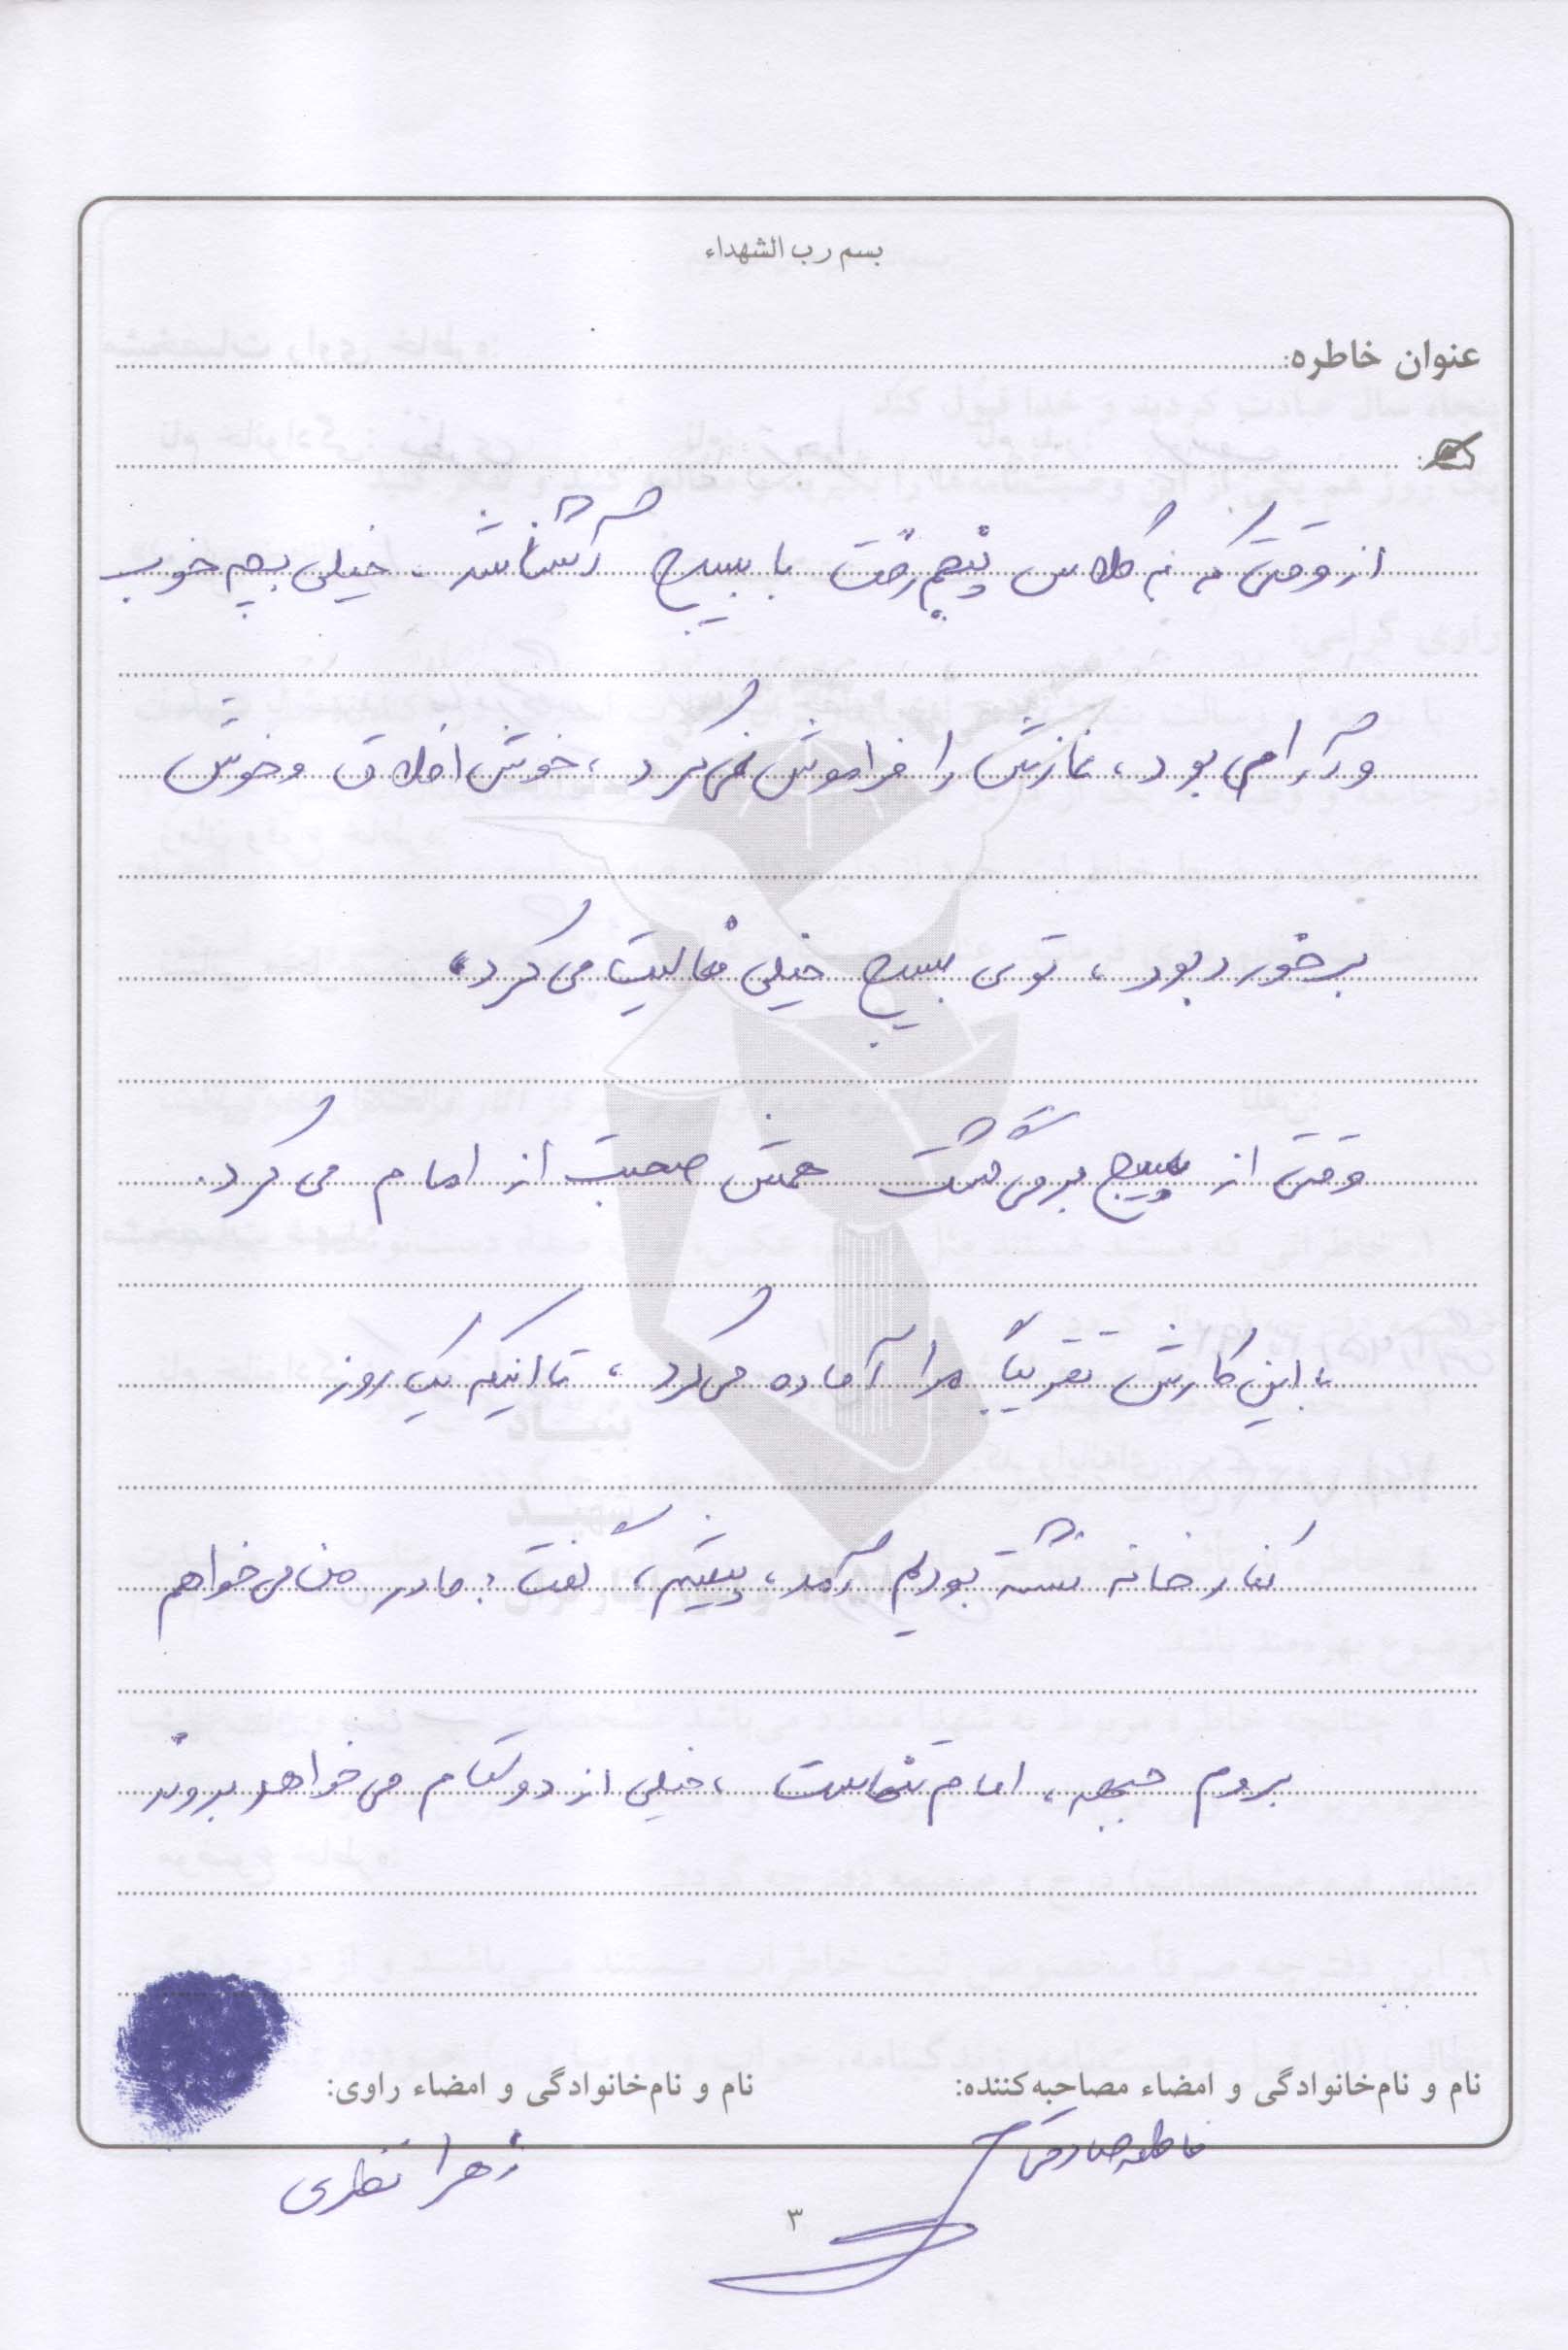 بسم رب الشهداء
عنوان خاطره:
از وقتی که به کلاس پنجم رفت با بسیج آشنا شد. خیلی بچه خوب
و آرامی بود، نمازش را فراموش نمی‌کرد، خوش اخلاق و خوش
برخورد بود، توی بسیج خیلی فعالیت می‌کرد.
وقتی از بسیج برمی‌گشت همش صحبت از امام می‌کرد.
با این کارش تقریباً مرا آماده می‌کرد، تا اینکه یک روز
کنار خانه نشسته بودیم آمد، پیشم، گفت: مادر من می‌خواهم
بروم جبهه، امام تنهاست، خیلی از دوستام می‌خواهند بروند
نام و نام‌خانوادگی و امضاء مصاحبه‌کننده:
نام و نام‌خانوادگی و امضاء راوی:
فاطمه صادقی
زهرا نظری
۳